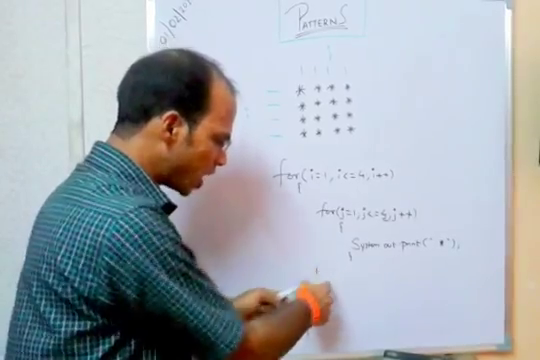 01/02/20
PATTERNS
* * * *
* * * *
* * * *
* * * *
for(i=1, i<=4, i++)
{
for(j=1, j<=4, j++)
{
System out print("*");
}